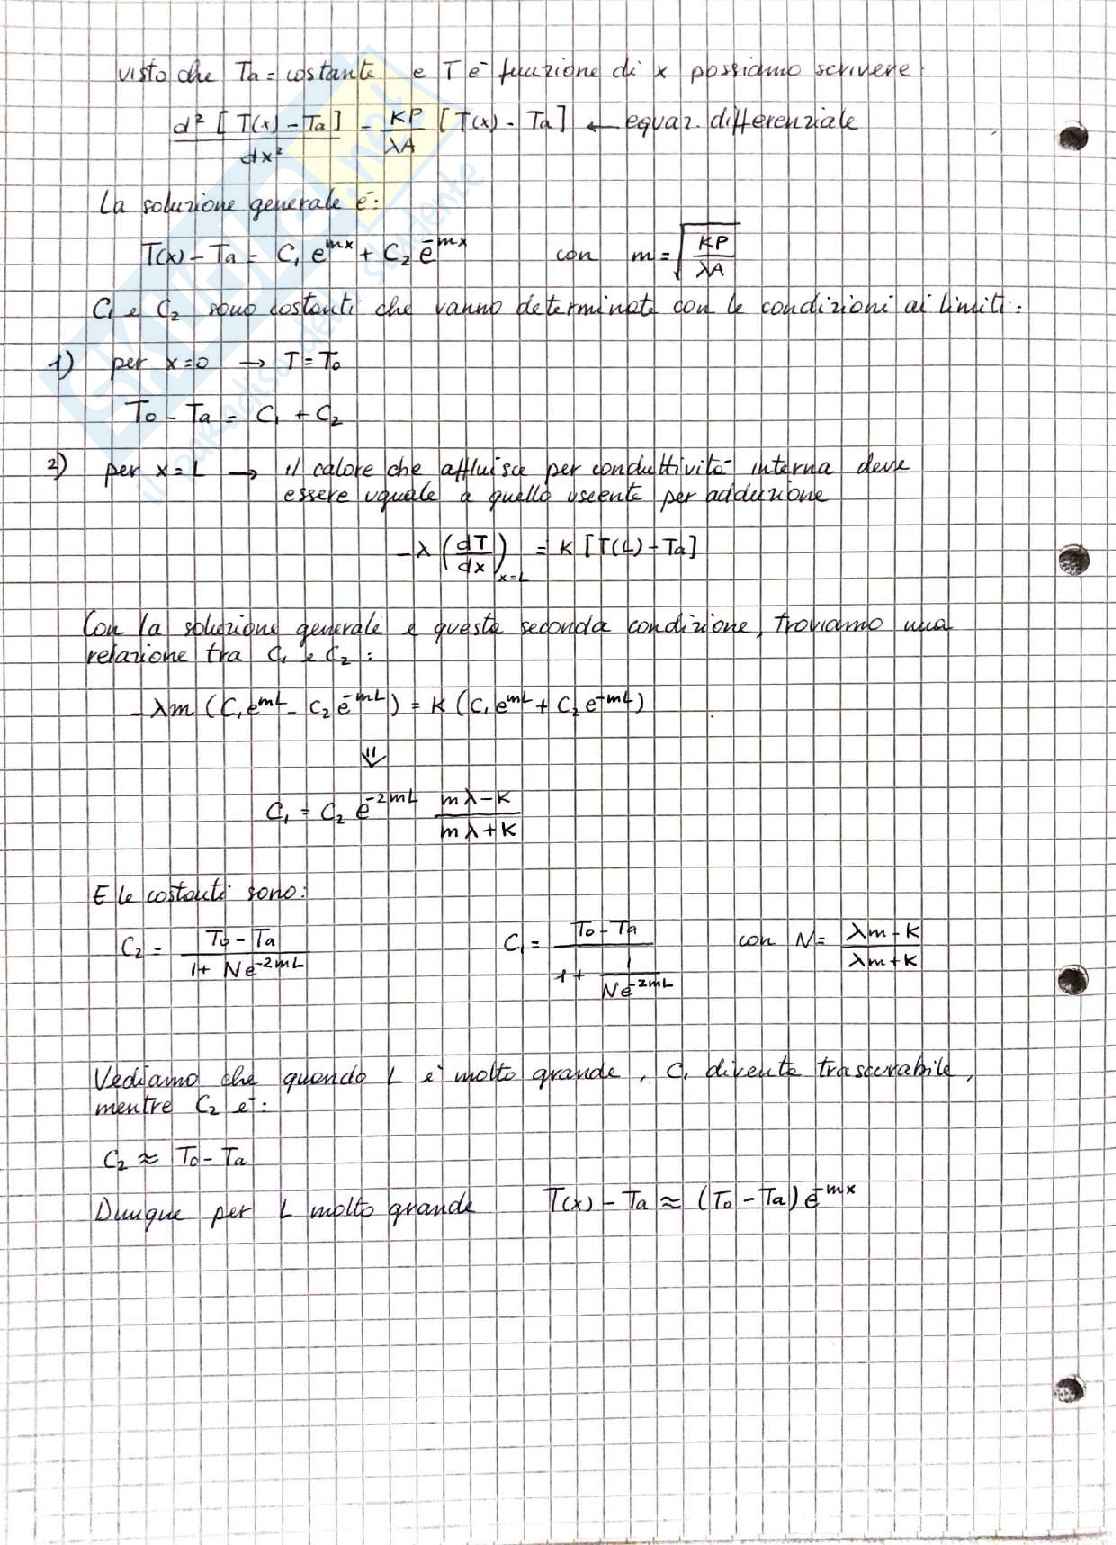 visto che Ta = costante e T è funzione di x possiamo scrivere:
d² [T(x) - Ta] / dx² = KP / λA [T(x) - Ta] ← equaz. differenziale
La soluzione generale è:
T(x) - Ta = C₁ e^mx + C₂ e^-mx con m = √(KP / λA)
C₁ e C₂ sono costanti che vanno determinate con le condizioni ai limiti:
1) per x=0 → T = To
To - Ta = C₁ + C₂
2) per x = L → il calore che affluisce per conduttività interna deve
essere uguale a quello uscente per adduzione
-λ (dT/dx)x=L = K [T(L) - Ta]
Con la soluzione generale e questa seconda condizione, troviamo una
relazione tra C₁ e C₂:
-λm (C₁e^mL - C₂e^-mL) = K (C₁e^mL + C₂e^-mL)
⇓
C₁ = C₂ e^-2mL (mλ-K) / (mλ+K)
E le costanti sono:
C₂ = (To - Ta) / (1 + Ne^-2mL) C₁ = (To - Ta) / (1 + 1 / (Ne^-2mL)) con N = (λm - K) / (λm + K)
Vediamo che quando L è molto grande, C₁ diventa trascurabile,
mentre C₂ è:
C₂ ≈ To - Ta
Dunque per L molto grande T(x) - Ta ≈ (To - Ta) e^-mx